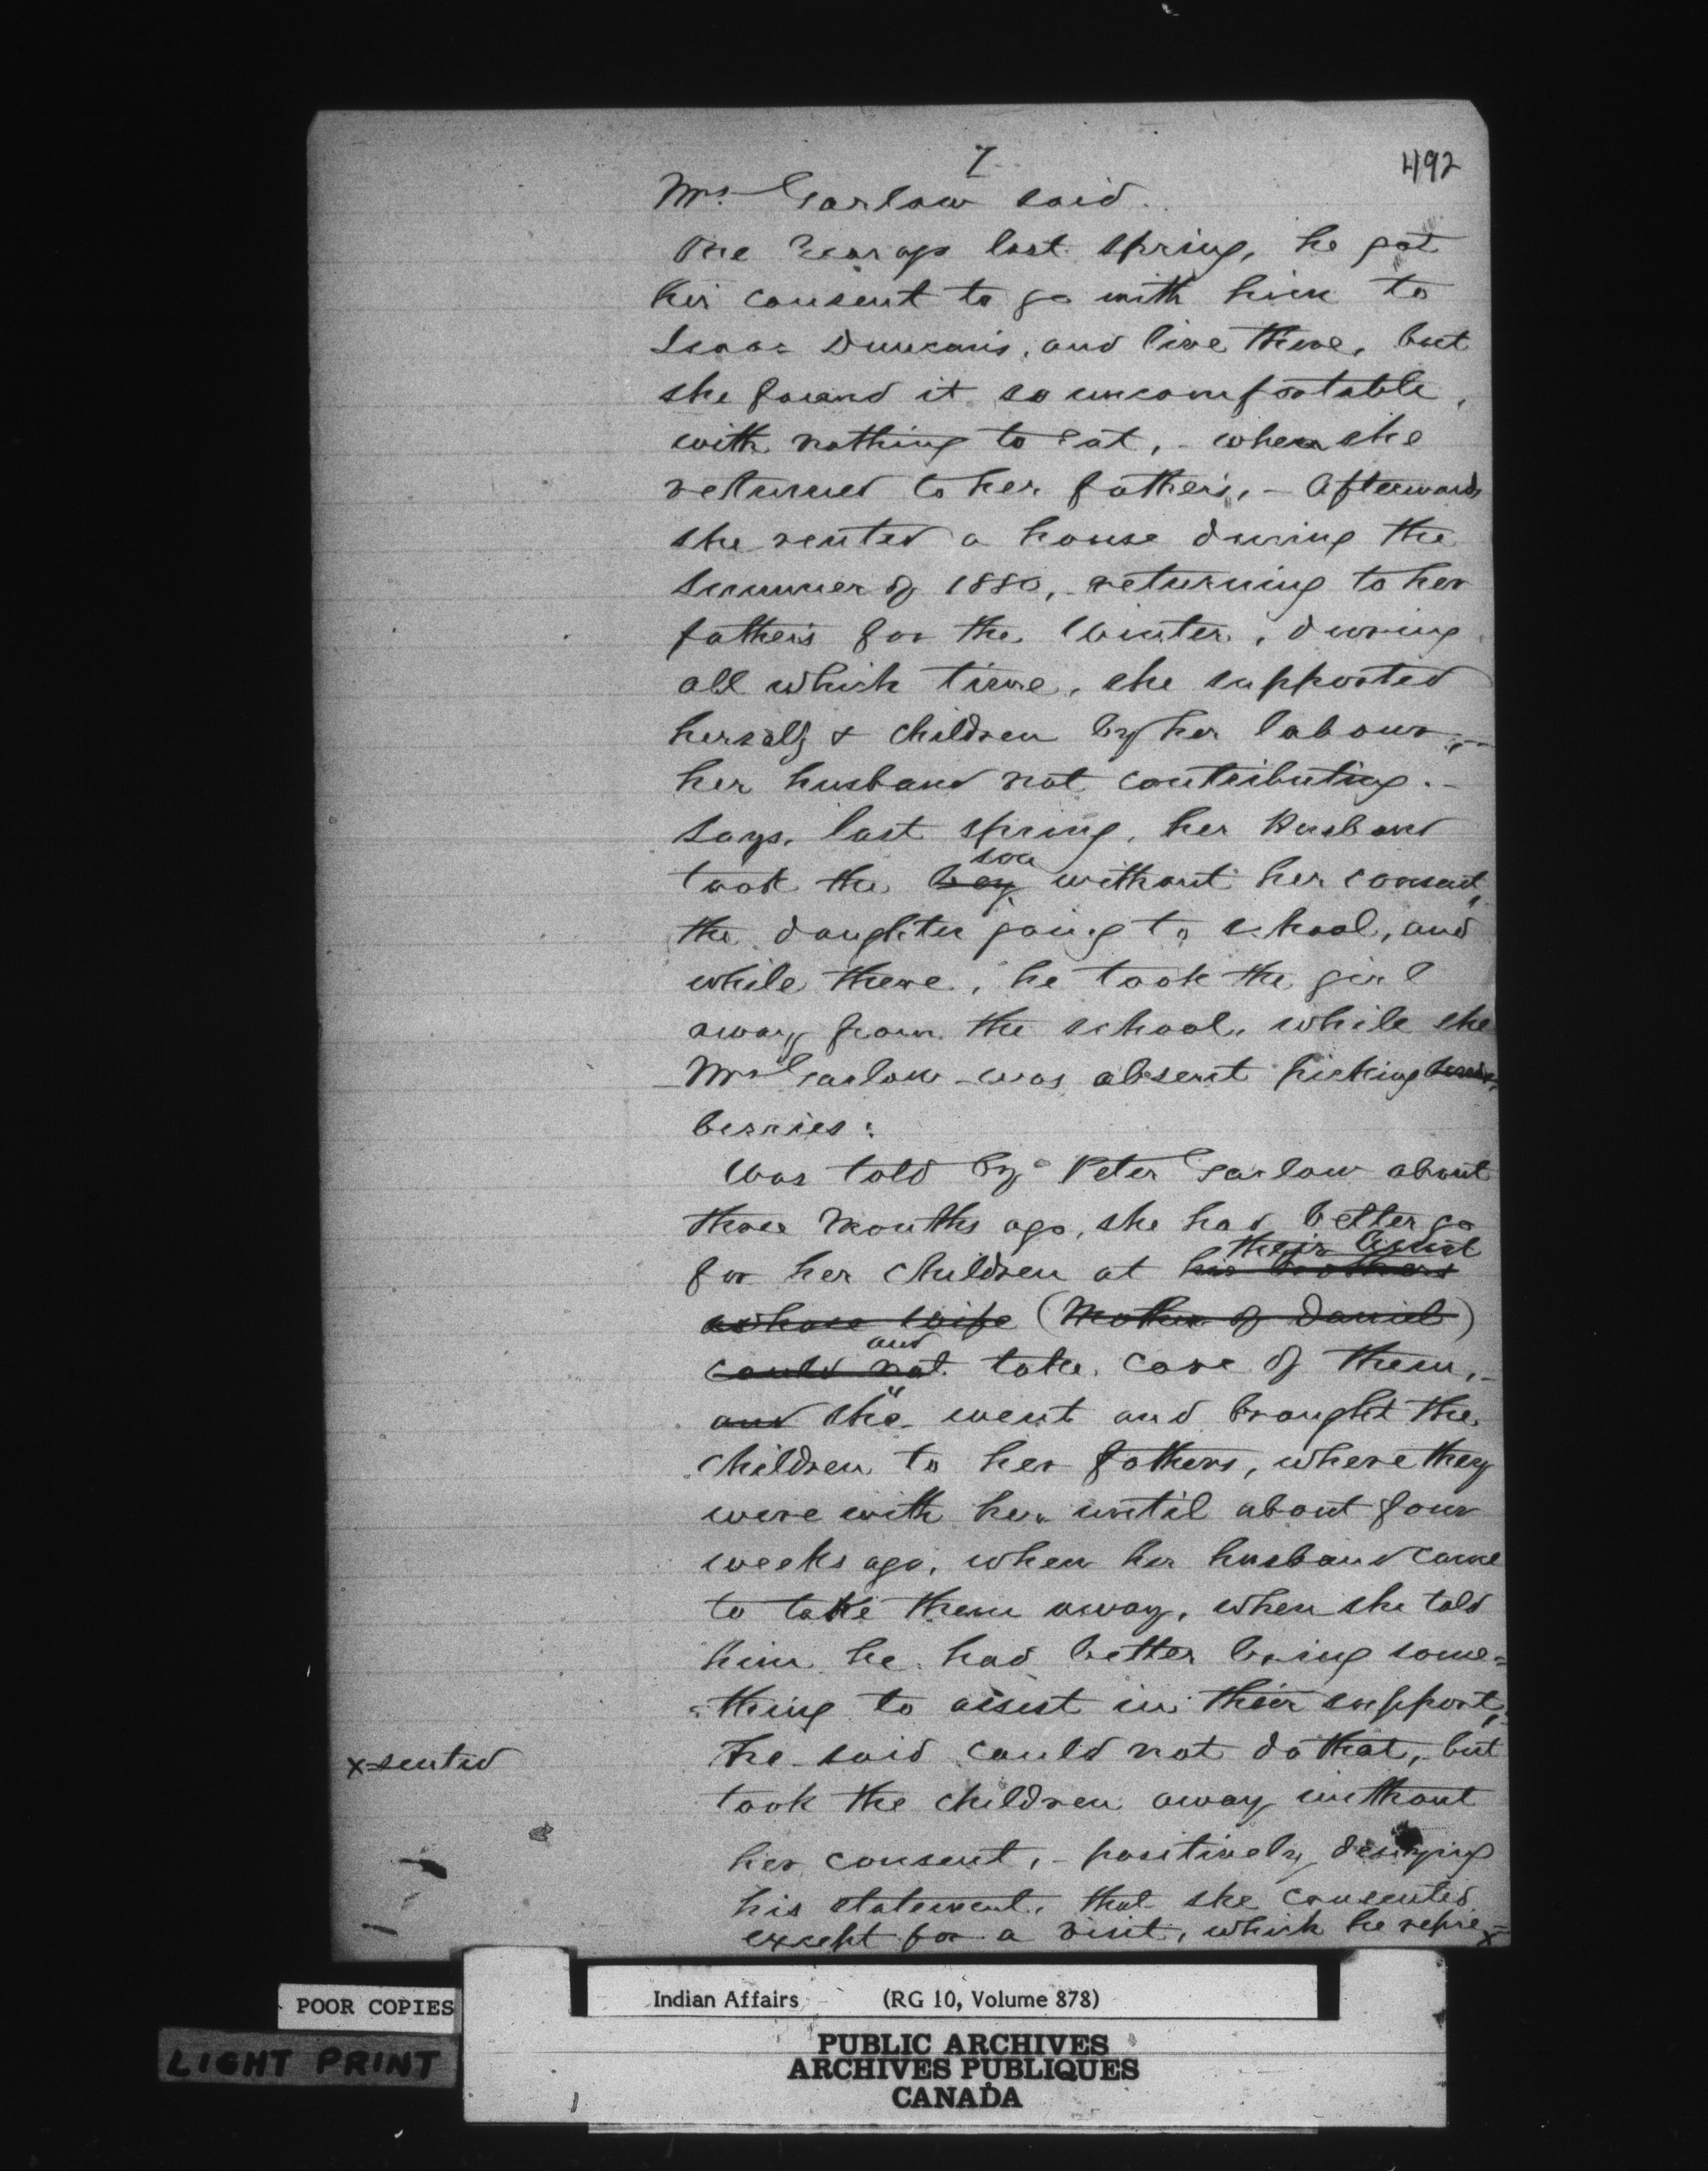 7
492
Mrs. Garlow said.
One Year ago last spring, he got
her consent to go with him to
Isaac Duncan's, and live there, but
she found it so uncomfortable,
with nothing to eat, - when she
returned to her father's, - Afterwards
she rented a house during the
Summer of 1880, - returning to her
father's for the Winter, during
all which time, she supported
herself & children by her labour, -
her husband not contributing. -
Says, last spring, her Husband
son
took the boy without her consent,
the daughter going to school, and
while there, he took the girl
away from the school, while she
Mrs Garlow - was absent picking
berries:
Was told by Peter Garlow about
three Months ago, she had better go
their Aunt
for her children at his brothers
whose wife (Mother of Daniel)
and
could not take care of them, -
and she went and brought the
children to her fathers, where they
were with her until about four
weeks ago, when her husband came
to take them away, when she told
him he had better bring some=
=thing to assist in their support,
he said could not do that, but
x-sented
took the children away without
her consent, - positively denying
his statement, that she consented
except for a visit, which he repre=
x
POOR COPIES
LIGHT PRINT
Indian Affairs (RG 10, Volume 878)
PUBLIC ARCHIVES
ARCHIVES PUBLIQUES
CANADA